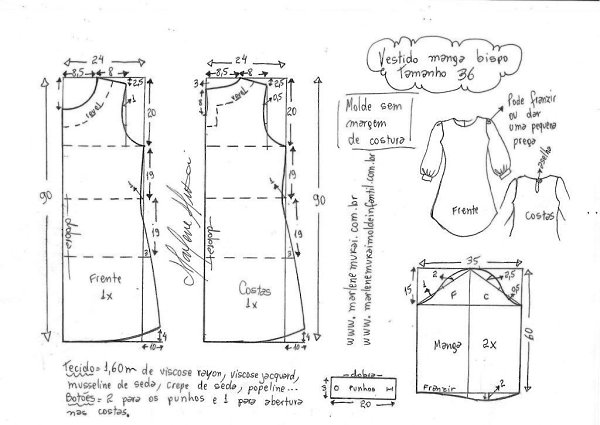 Vestido manga bispo
Tamanho 36
Molde sem
margem
de costura
www.marlenemukai.com.br
www.marlenemukaimoldeinfantil.com.br
Pode franzir
ou dar
uma pequena
prega
Frente
abertura
Costas
24
8,5
8
2,5
1
revel
20
90
19
1
19
dobra
3
Frente
1x
4
10
Marlene Mukai
24
8,5
8
3
8
2,5
0,5
revel
20
90
19
1
19
dobra
3
Costas
1x
4
10
35
15
2
2,5
1
0,5
F
C
60
Manga
2x
Franzir
2
dobra
3
punhos
20
Tecido = 1,60m de viscose rayon, viscose jacquard,
musseline de seda, crepe de seda, popeline...
Botões = 2 para os punhos e 1 para abertura
nas costas.